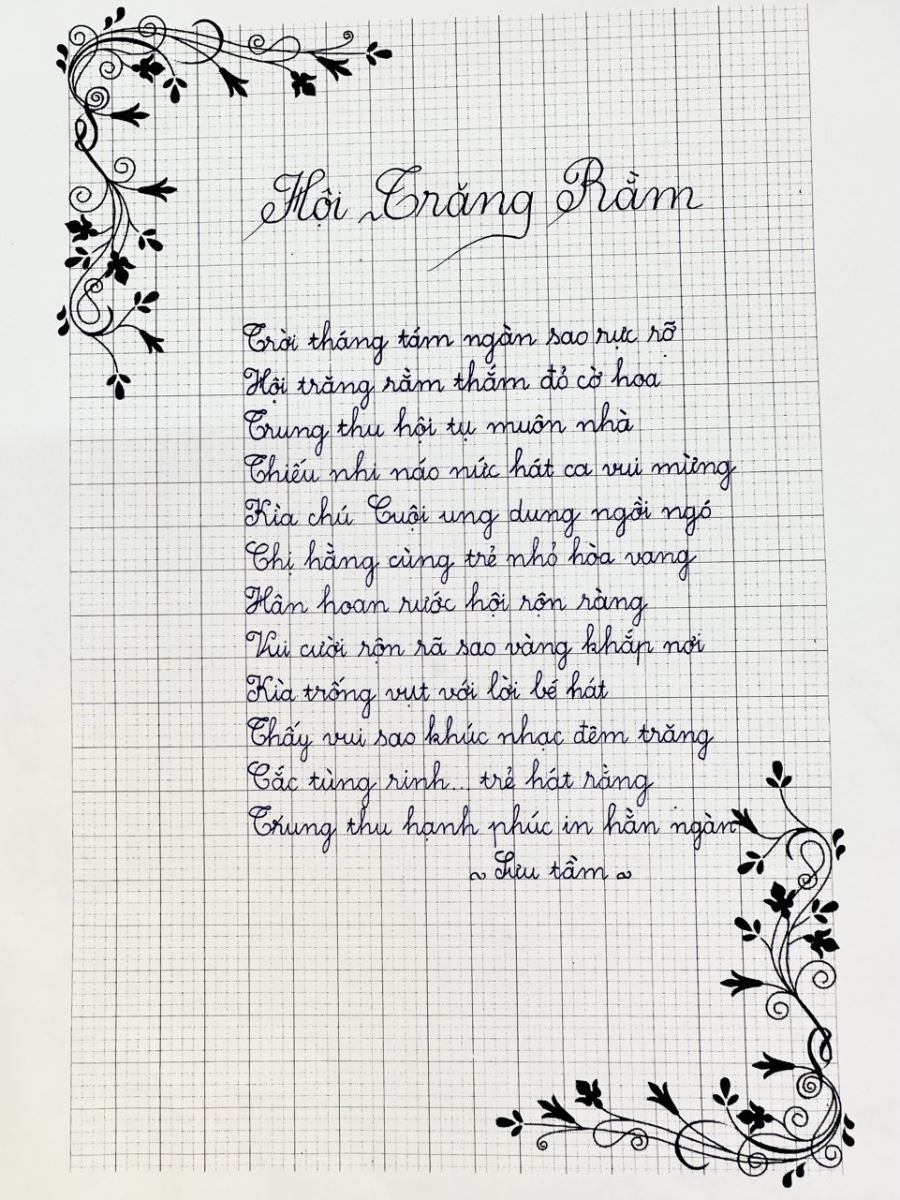 Hội Trăng Rằm
Trời tháng tám ngàn sao rực rỡ
Hội trăng rằm thắm đỏ cờ hoa
Trung thu hội tụ muôn nhà
Thiếu nhi náo nức hát ca vui mừng
Kìa chú Cuội ung dung ngồi ngó
Chị hằng cùng trẻ nhỏ hòa vang
Hân hoan rước hội rộn ràng
Vui cười rộn rã sao vàng khắp nơi
Kìa trống vụt với lời bé hát
Thấy vui sao khúc nhạc đêm trăng
Cắc tùng rinh... trẻ hát rằng
Trung thu hạnh phúc in hằn ngàn
~ Sưu tầm ~